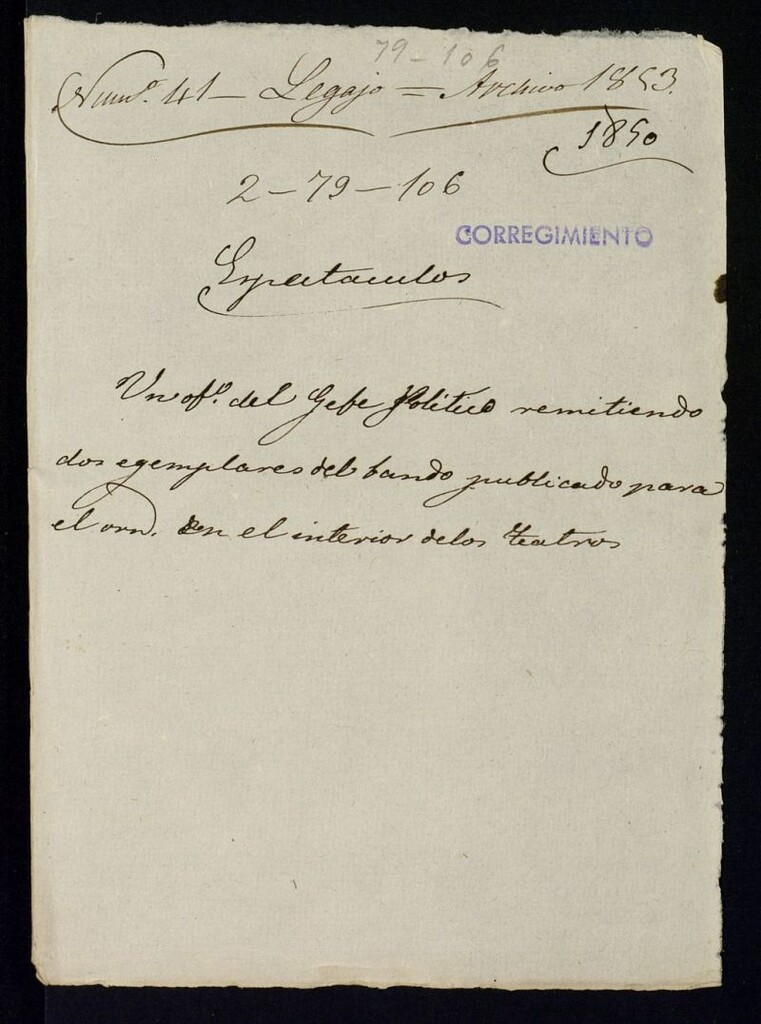 79-106
Num.º 41 - Legajo = Archivo 1853.
1850
2-79-106
CORREGIMIENTO
Espectaculos
Un of.º del Gefe Politico remitiendo
dos egemplares del bando publicado para
el orn. en el interior delos teatros